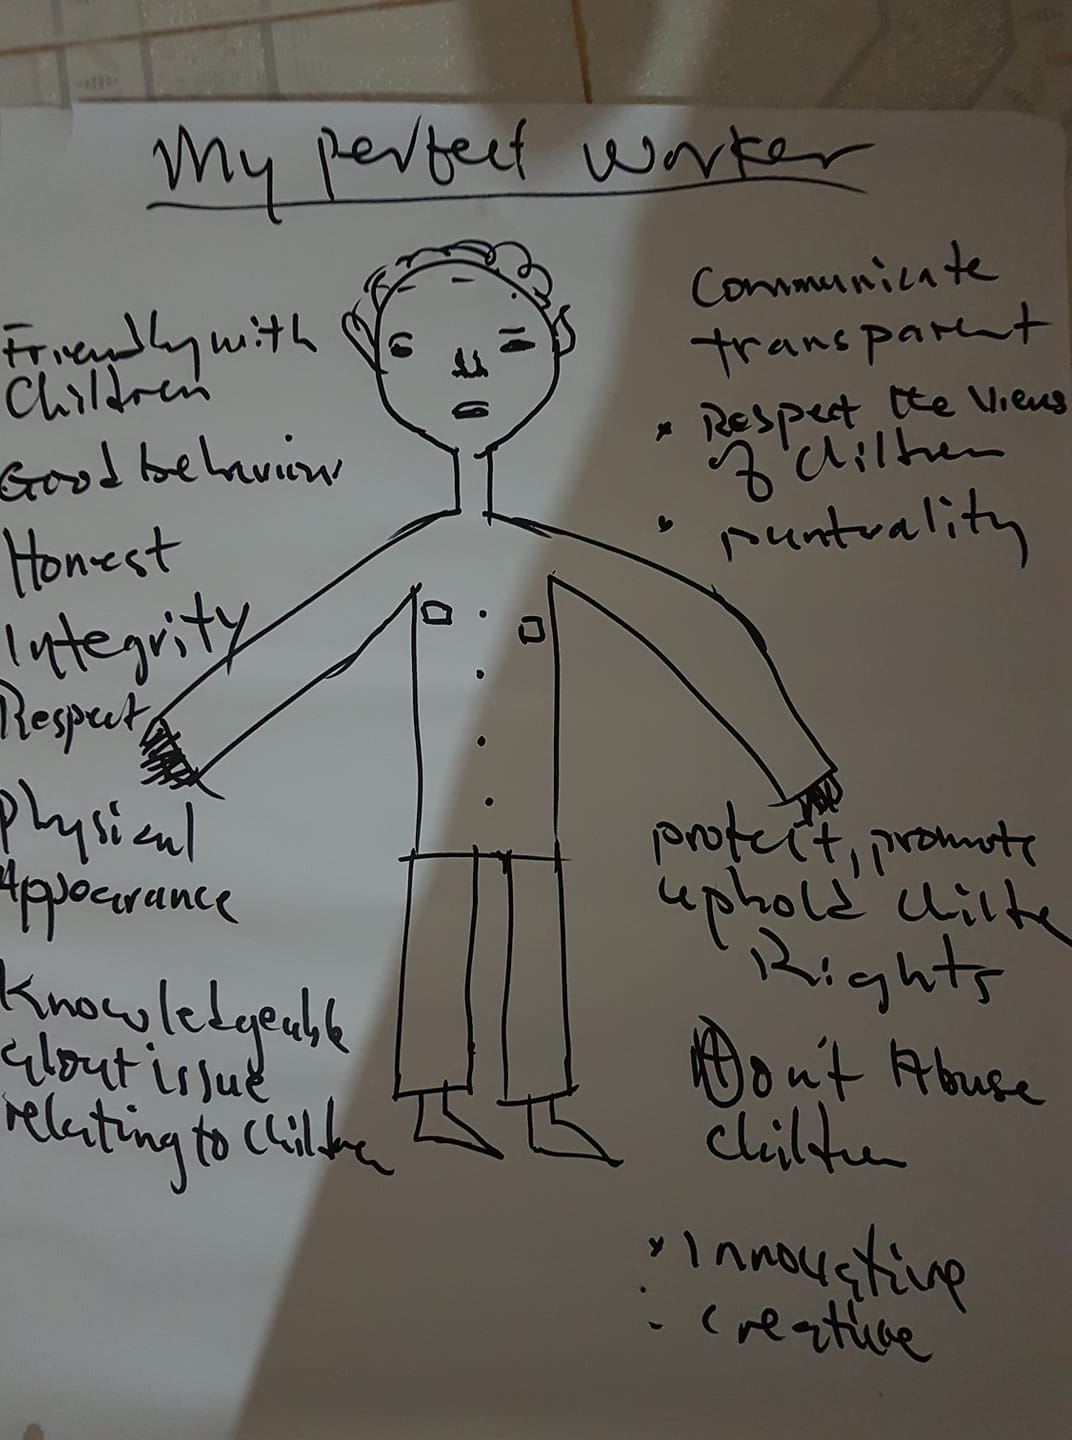 My perfect worker
Friendly with
Children
Good behaviour
Honest
Integrity
Respect
Physical
Appearance
Knowledgeable
about issue
relating to Children
Communicate
transparent
* Respect the views
of Children
• puntuality
protect, promote
uphold Childre
Rights
Don't Abuse
Children
* Innovative
- creative